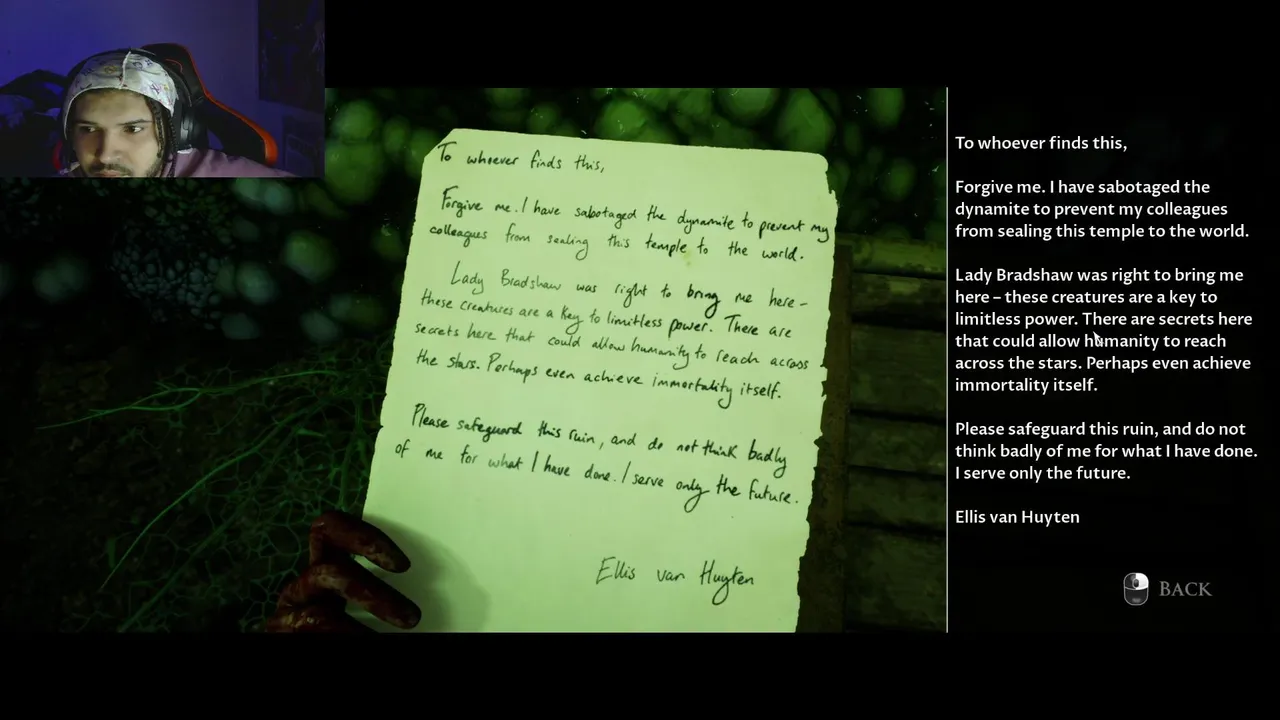 To whoever finds this,
Forgive me. I have sabotaged the dynamite to prevent my
colleagues from sealing this temple to the world.
Lady Bradshaw was right to bring me here –
these creatures are a key to limitless power. There are
secrets here that could allow humanity to reach across
the stars. Perhaps even achieve immortality itself.
Please safeguard this ruin, and do not think badly
of me for what I have done. I serve only the future.
Ellis van Huyten
To whoever finds this,
Forgive me. I have sabotaged the
dynamite to prevent my colleagues
from sealing this temple to the world.
Lady Bradshaw was right to bring me
here – these creatures are a key to
limitless power. There are secrets here
that could allow humanity to reach
across the stars. Perhaps even achieve
immortality itself.
Please safeguard this ruin, and do not
think badly of me for what I have done.
I serve only the future.
Ellis van Huyten
BACK